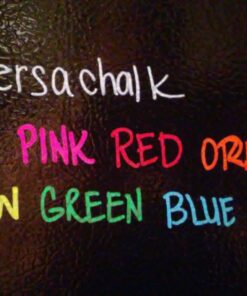 ersachalk
PINK RED OR
W GREEN BLUE